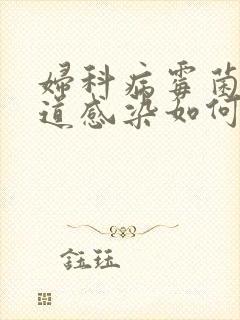 婦科病霉菌
道感染如何
鈺珏